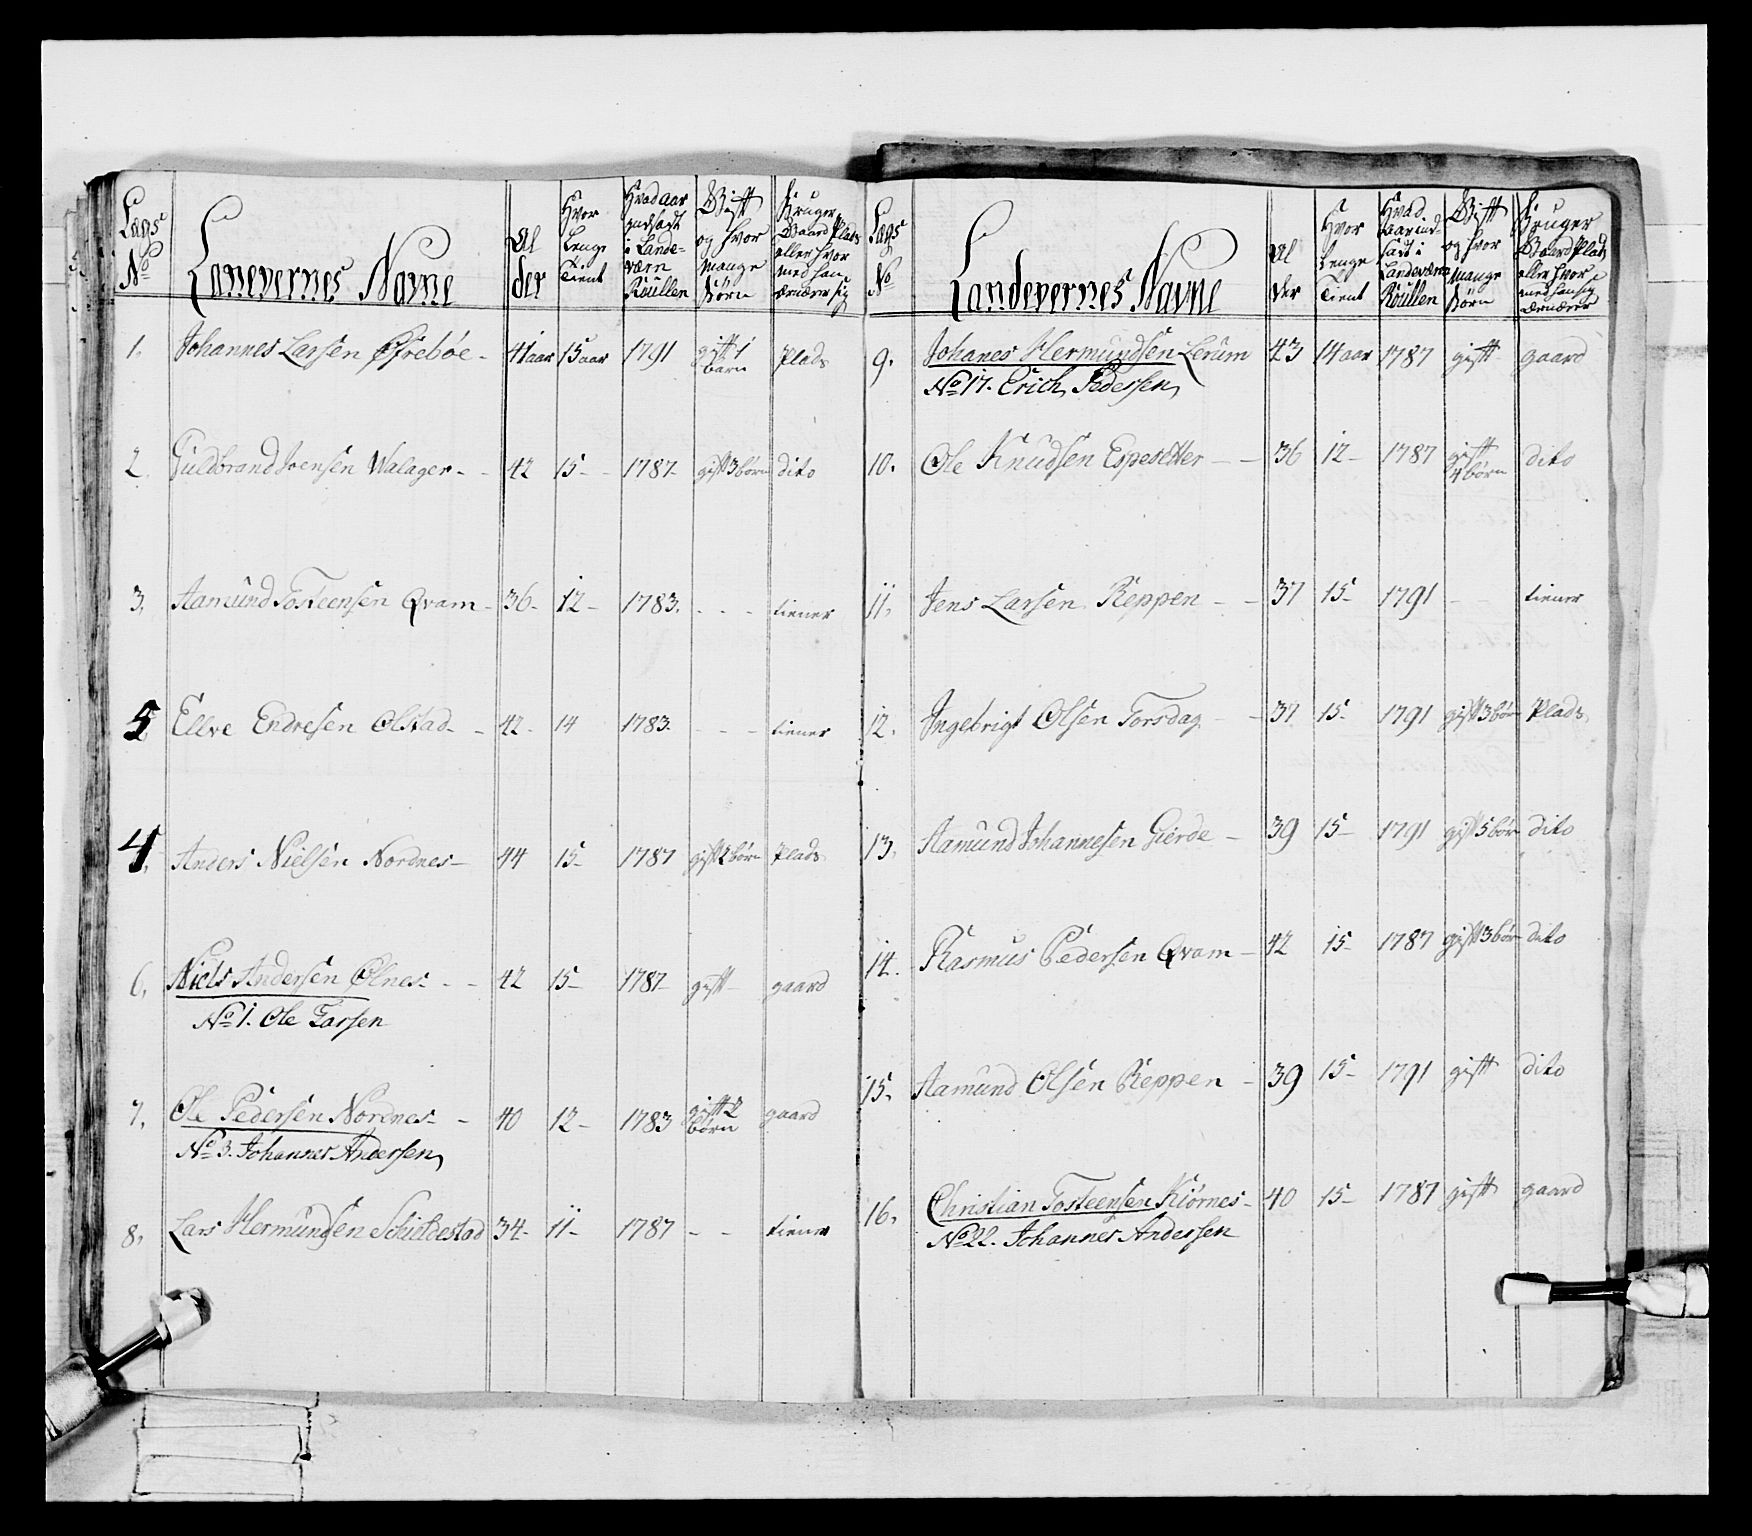 Lægs No | Lanevernes Navne | Al der | Hvor Lenge Tient | Hvad aar indsadt i Lande- værn Roullen | Gift og hvor mange Børn | Bruger Gaard Plads eller hvor med han ernærer sig
1. Johannes Larsen Øfrebøe - 41 aar 15 aar 1791 gift 1 barn Plads
2. Guldbrand Joensen Walager - - 42 15 - 1787 - gift 3 børn dito
3. Aamund Tosteensen Qvam - 36 - 12 - 1783. - - - tiener
5 Ellve Endresen Olstad - - 42 - 14 1783. - - - tiener
4. Anders Nielsen Nordnes - 44 15 - 1787 gift 2 børn Plads
6. Niels Andersen Ølnes - - 42 15 - 1787 - gift - gaard
No 1. Ole Larsen
7. Ole Pedersen Nordnes - - 40 12 - 1783 gift 2 børn gaard
No 3. Johannes Andersen
8. Lars Hermundsen Schioldestad 34 - 11 - 1787 - - tiener
Lægs No | Landevernes Navne | Al der | Hvor Lenge Tient | Hvad aar ind sadt i Landeværn Roullen | Gift og hvor mange Børn | Bruger Gaard Plads eller hvor med han sig ernærer
9. Johanes Hermundsen Lerum 43 14 aar 1787 gift gaard
No 17. Erich Pedersen
10. Ole Knudsen Espesetter - - 36 12 - 1787 gift 4 børn dito
11. Jens Larsen Reppen - - 37 15 - 1791 - tiener
12. Ingebrigt Olsen Torsdag - - 37 15 - 1791 gift 3 børn Plads
13. Aamund Johannesen Gierde - 39 15 - 1791 gift 5 børn dito
14. Rasmus Pedersen Qvam - 42 15 - 1787 gift 3 børn dito
15. Aamund Olsen Reppen - 39 15 - 1791 gift dito
16. Christian Tosteensen Kiørnes - 40 15 - 1787 gift gaard
No 22. Johannes Andersen